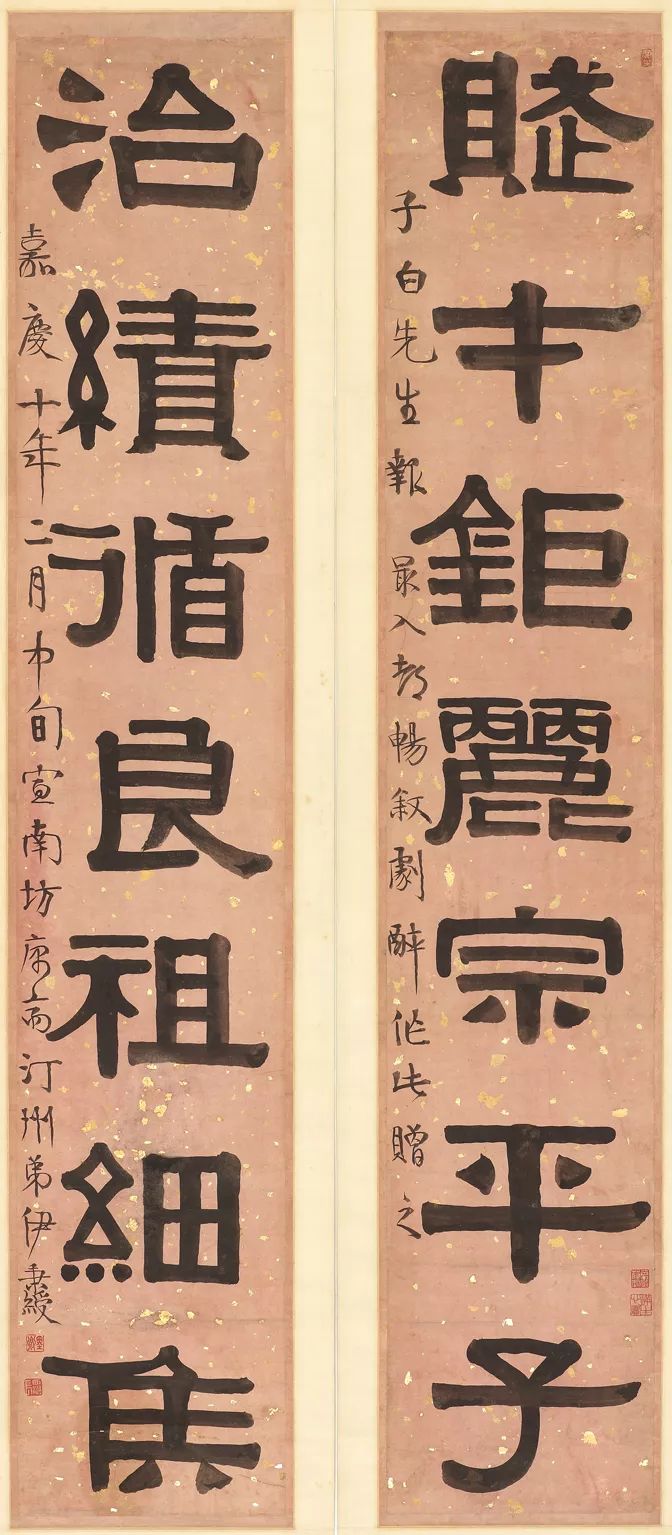 賦才鉅麗宗平子
子白先生報最入都暢敘劇醉作此贈之
治績循良祖細侯
嘉慶十年二月中旬宣南坊寓齋汀州弟伊秉綬